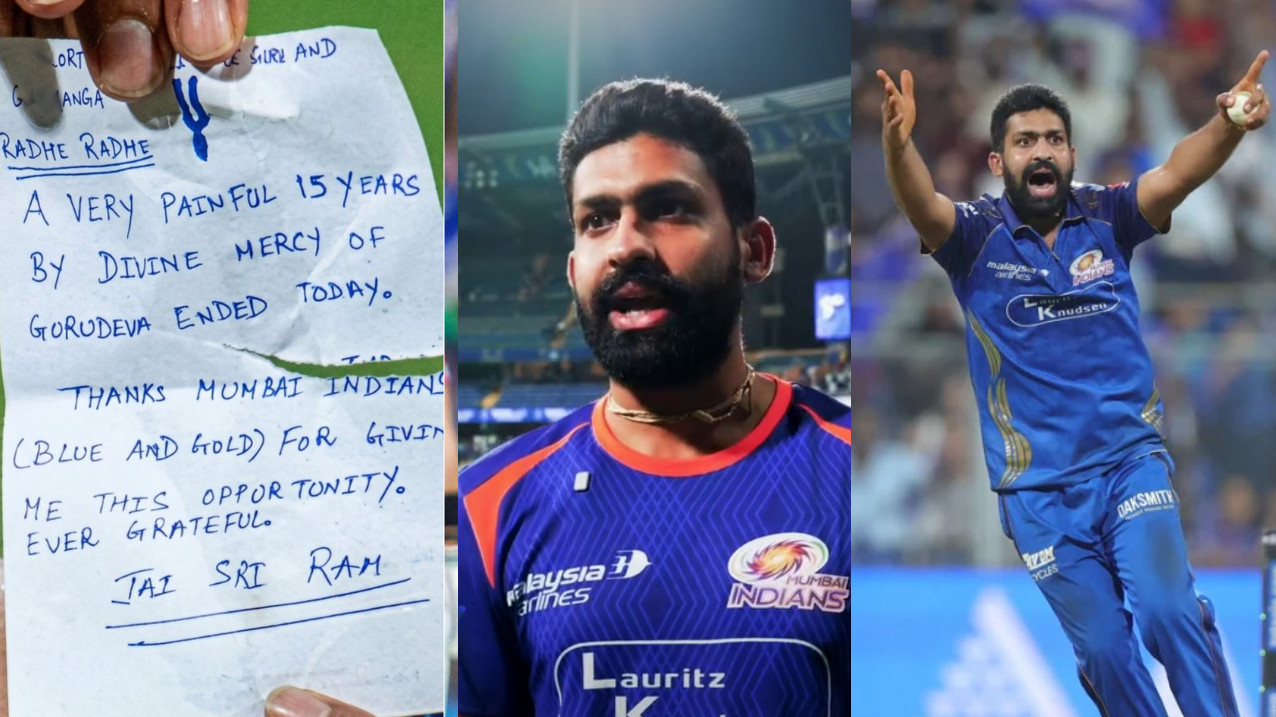 SIURU AND
G ANGA
RADHE RADHE
A VERY PAINFUL 15 YEARS
BY DIVINE MERCY OF
GORUDEVA ENDED TODAY.
THANKS MUMBAI INDIANS
(BLUE AND GOLD) FOR GIVIN
ME THIS OPPORTUNITY.
EVER GRATEFUL.
JAI SRI RAM
malaysia
airlines
MUMBAI
INDIANS
Lauritz
malaysia
airlines
INDIANS
Lauritz
Knudsen
OAKSMITH